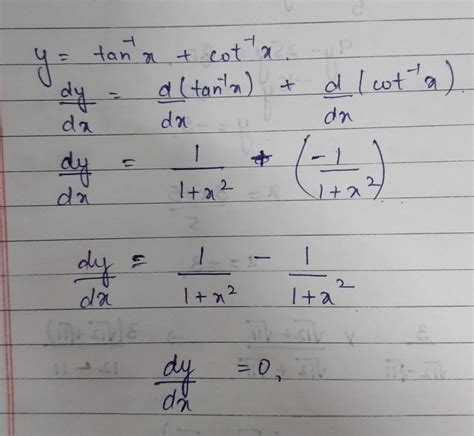 y = tan⁻¹x + cot⁻¹x.
dy/dx = d/dx (tan⁻¹x) + d/dx (cot⁻¹x)
dy/dx = 1/(1+x²) + (-1/(1+x²))
dy/dx = 1/(1+x²) - 1/(1+x²)
dy/dx = 0,